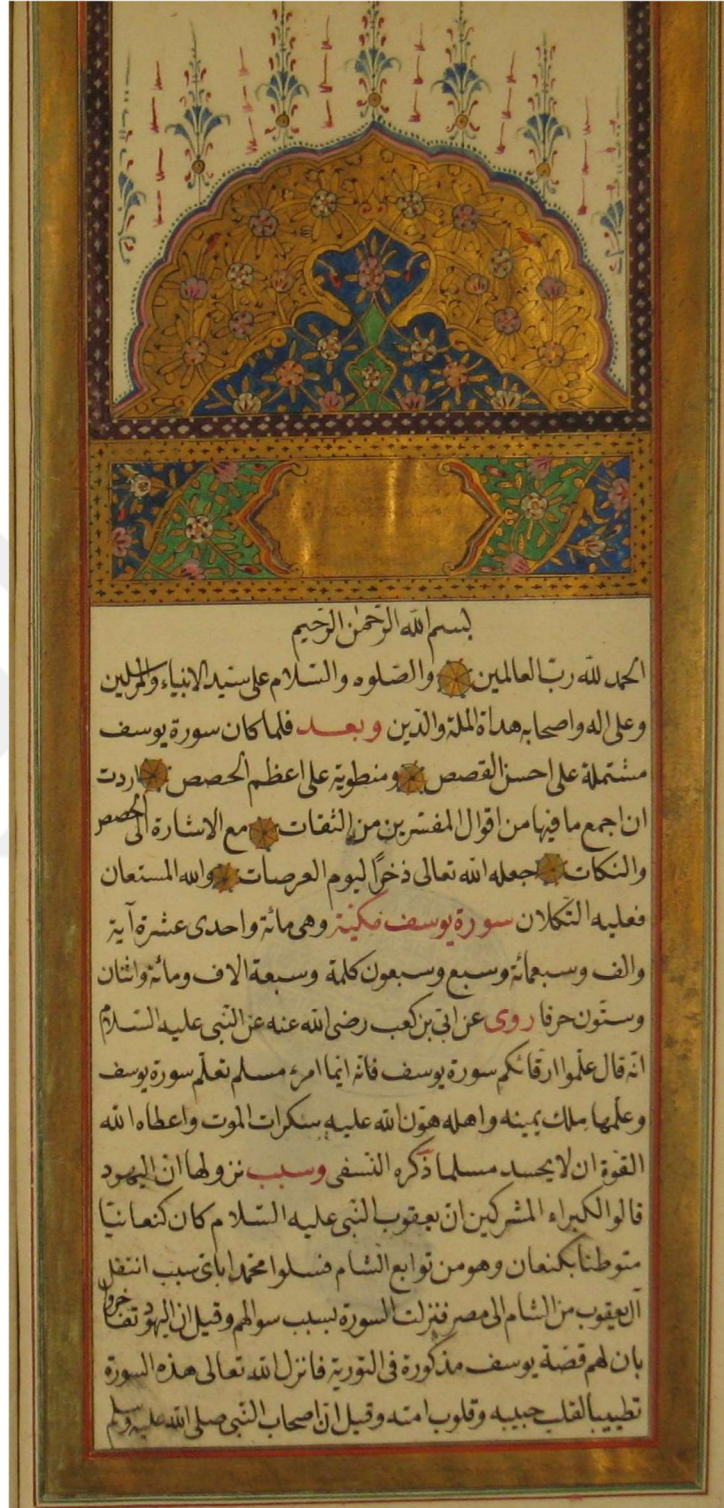 بسم الله الرّحمن الرّحيم
الحمد لله ربّ العالمين والصّلوه والسّلام على سيّد الانبياء والمرسلين
وعلى اله واصحابه هداة الملة والدّين وبعد فلما كان سورة يوسف
مشتملة على احسن القصص ومنطوية على اعظم الحصص اردت
ان اجمع ما فيها من اقوال المفسّرين من الثقات مع الاشارة الى الحصص
والنكات جعله الله تعالى ذخرًا ليوم العرصات والله المستعان
فعليه التّكلان سورة يوسف مكيّة وهى مائة واحدى عشرة آية
والف وسبعمائة وسبع وسبعون كلمة وسبعة الاف ومائة واثنان
وستّون حرفا روى عن ابىّ بن كعب رضى الله عنه عن النّبى عليه السّلام
انّه قال علّموا ارقائكم سورة يوسف فانّه ايّما امرء مسلم تعلّم سورة يوسف
وعلّمها ملك يمينه واهله هوّن الله عليه سكرات الموت واعطاه الله
القوّة ان لا يحسد مسلما ذكره النّسفى وسبب نزولها انّ اليهود
قالوا لكبراء المشركين انّ يعقوب النّبى عليه السّلام كان كنعانيّا
متوطنا بكنعان وهو من توابع الشام فسلوا محمّدا باىّ سبب انتقل
آل يعقوب من الشام الى مصر فنزلت السورة بسبب سوالهم وقيل ان اليهود تفاخروا
بان لهم قصّة يوسف مذكورة فى التورية فانزل الله تعالى هذه السورة
تطييبا لقلب حبيبه وقلوب امته وقيل انّ اصحاب النّبى صلى الله عليه وسلم